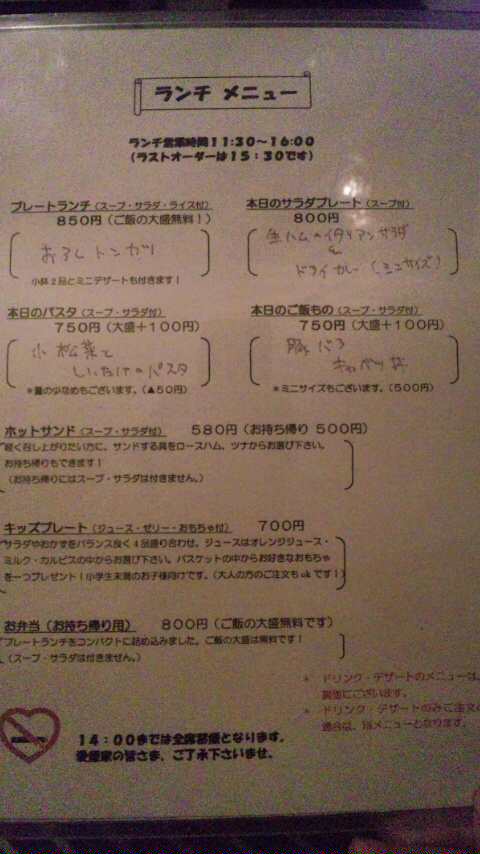 ランチ メニュー
ランチ営業時間11:30～16:00
（ラストオーダーは15:30です）
プレートランチ（スープ・サラダ・ライス付）
850円（ご飯の大盛無料！）
おろしトンカツ
小鉢2品とミニデザートも付きます！
本日のサラダプレート（スープ付）
800円
生ハムのイタリアンサラダ
&
ドライカレー（ミニサイズ）
本日のパスタ（スープ・サラダ付）
750円（大盛＋100円）
小松菜と
しいたけのパスタ
＊量の少なめもございます。（▲50円）
本日のご飯もの（スープ・サラダ付）
750円（大盛＋100円）
豚バラ
キャベツ丼
＊ミニサイズもございます。（500円）
ホットサンド（スープ・サラダ付） 580円（お持ち帰り 500円）
軽く召し上がりたい方に、サンドする具をロースハム、ツナからお選び下さい。
お持ち帰りもできます！
（お持ち帰りにはスープ・サラダは付きません。）
キッズプレート（ジュース・ゼリー・おもちゃ付） 700円
サラダやおかずをバランス良く4品盛り合わせ。ジュースはオレンジジュース・
ミルク・カルピスの中からお選び下さい。バスケットの中からお好きなおもちゃ
を一つプレゼント！小学生未満のお子様向けです。（大人の方のご注文もokです！）
お弁当（お持ち帰り用） 800円（ご飯の大盛無料です）
プレートランチをコンパクトに詰め込みました。ご飯の大盛は無料です！
（スープ・サラダは付きません。）
＊ ドリンク・デザートのメニューは、
裏面にございます。
＊ ドリンク・デザートのみご注文の
場合は、別メニューとなります。
14:00までは全席禁煙となります。
愛煙家の皆さま、ご了承下さいませ。